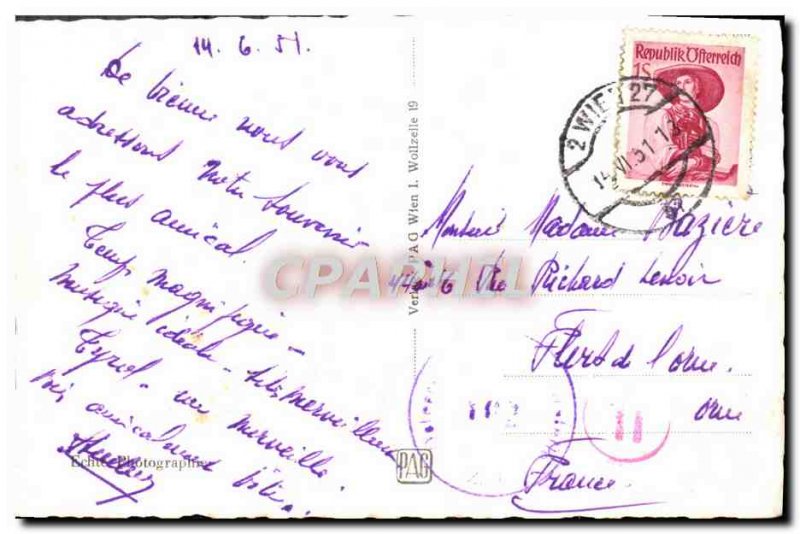 14.6.51.
De Vienne nous vous
adressons notre souvenir
le plus amical.
Temps magnifique -
musique idéale - très merveilleux
Tyrol - une merveille.
bien amicalement
Echte Photographie
Verlag PAG Wien I. Wollzeile 19
PAG
Republik Österreich
1S
2 WIEN 27
14.VI.51.12
Monsieur Madame Bazière
Rue Richard Lenoir
Flers de l'orne
orne
France.
II
CPAPHIL